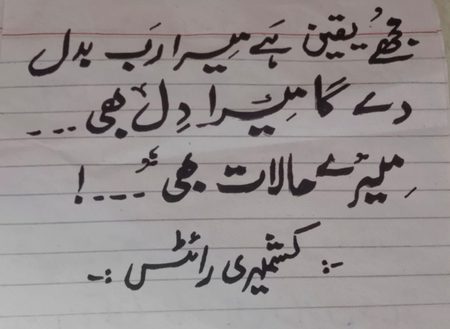 مجھے یقین ہے میرا رَب بدل
دے گا میرا دِل بھی ---
میرے حالات بھی ---!
-: کشمیری رائٹس :-